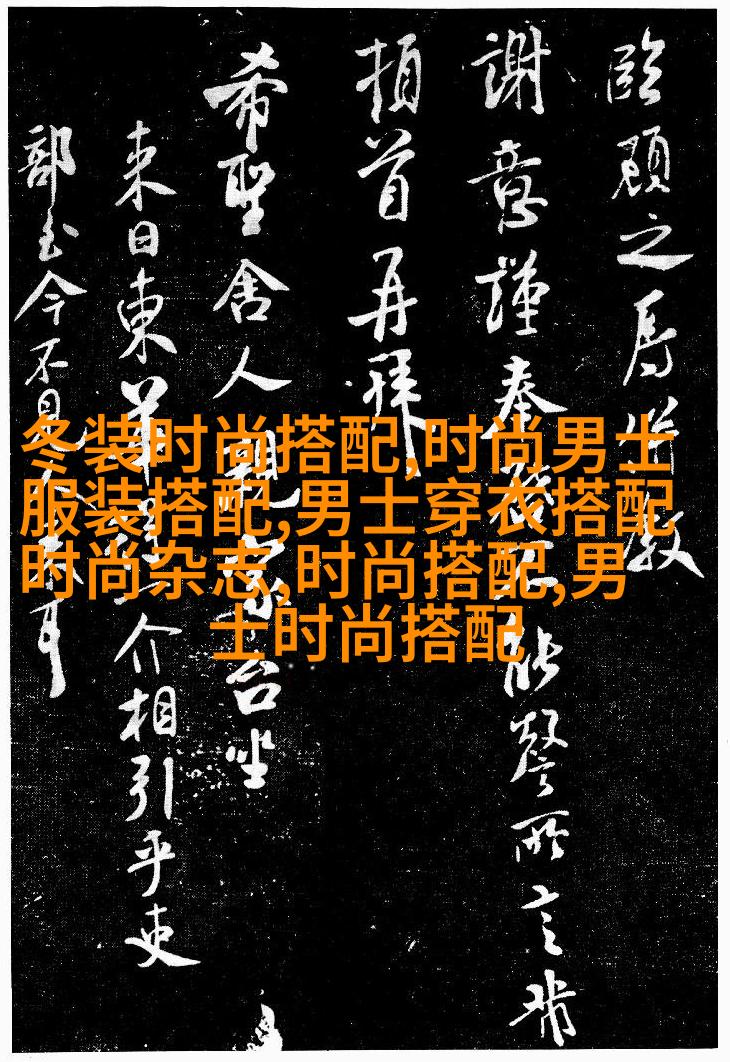 冬装时尚搭配,时尚男士
服装搭配,男士穿衣搭配
时尚杂志,时尚搭配,男
士时尚搭配
臨顧之辱教
謝意謹奉能罄所言黻
頓首再拜
希聖舍人親家台坐
来日東華一介相引乎吏
部至今不見耳